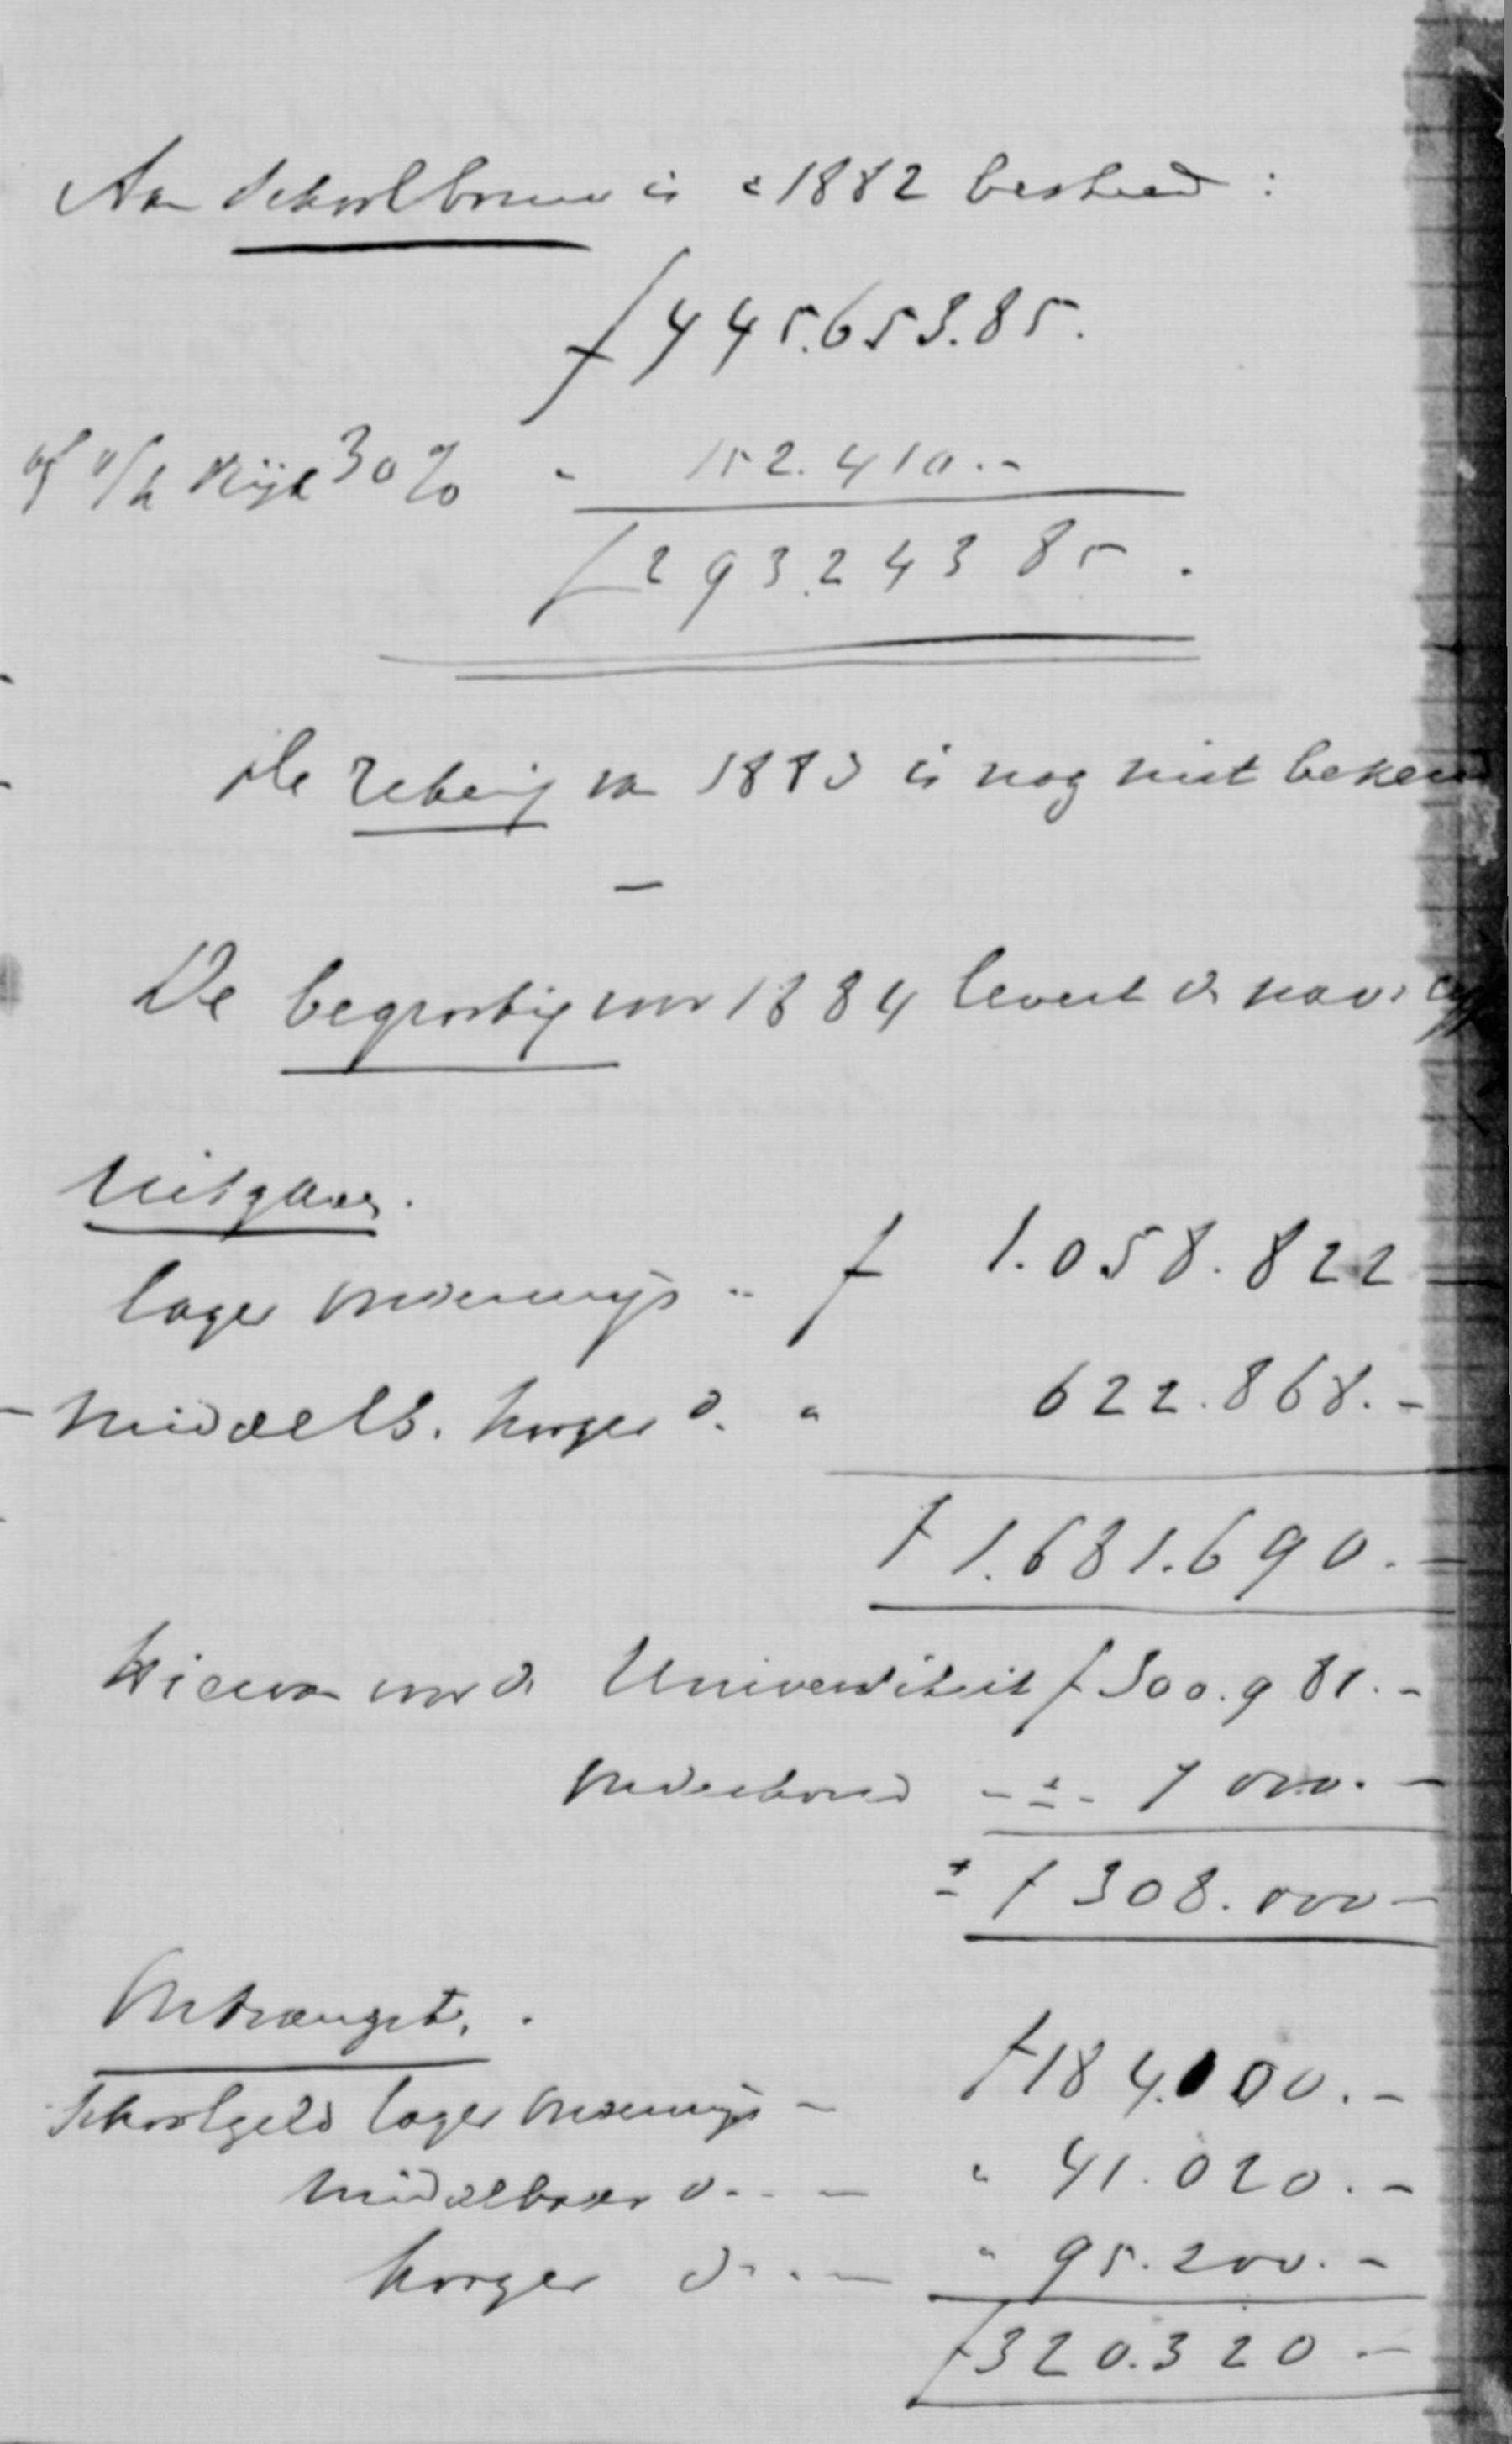 Aan Schoolbouw is in 1882 besteed :
f 445.653.85.
af v/h Rijk 30% " 152.410.-
f 293.243 85.
De rekening van 1883 is nog niet bekend
—
De begrooting voor 1884 levert de nav. cijf
Uitgaven.
lager onderwijs .. f 1.058.822 —
Middelb. hooger o. " 622.868.-
f 1.681.690.—
Hiervan voor de Universiteit f 300.981.-
onderhoud - ± - 7000.—
± f 308.000—
Ontvangst.
Schoolgeld lager onderwijs — f 184.100.-
middelbaar o. . — " 41.020.-
hooger o. . — " 95.200.-
f 320.320 —